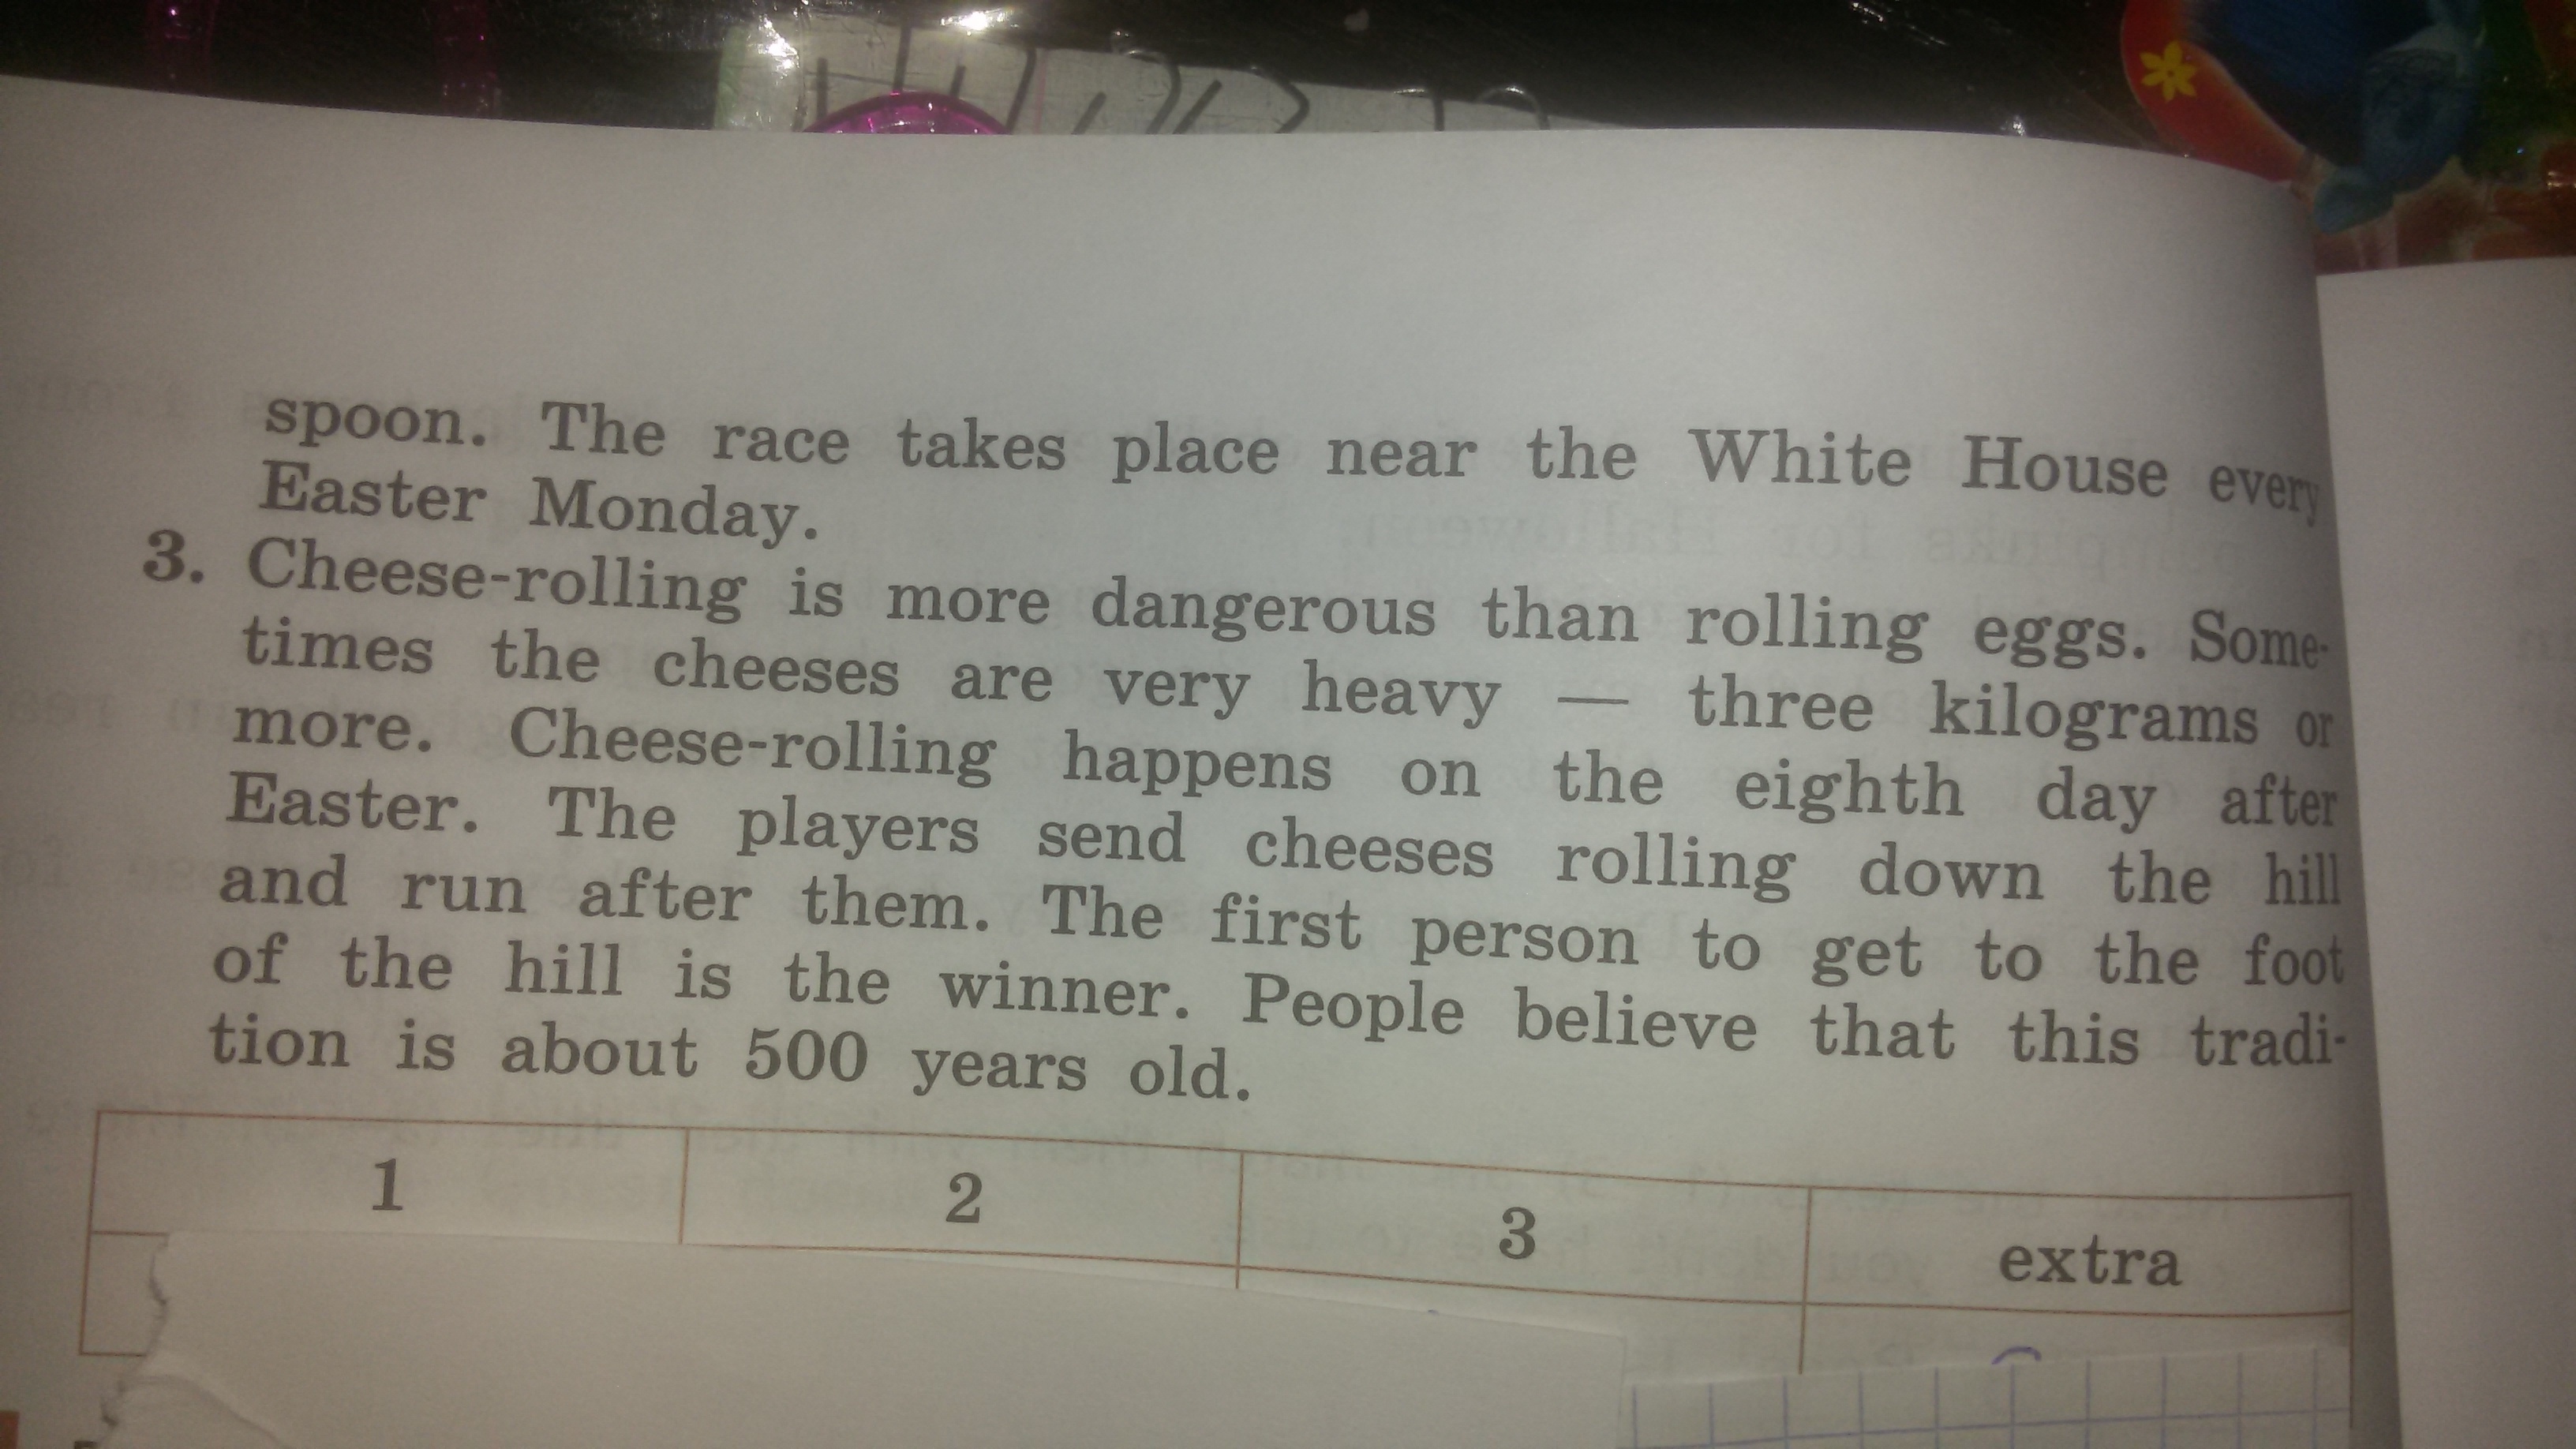 spoon. The race takes place near the White House every
Easter Monday.
3. Cheese-rolling is more dangerous than rolling eggs. Some-
times the cheeses are very heavy — three kilograms or
more. Cheese-rolling happens on the eighth day after
Easter. The players send cheeses rolling down the hill
and run after them. The first person to get to the foot
of the hill is the winner. People believe that this tradi-
tion is about 500 years old.
1 2 3 extra